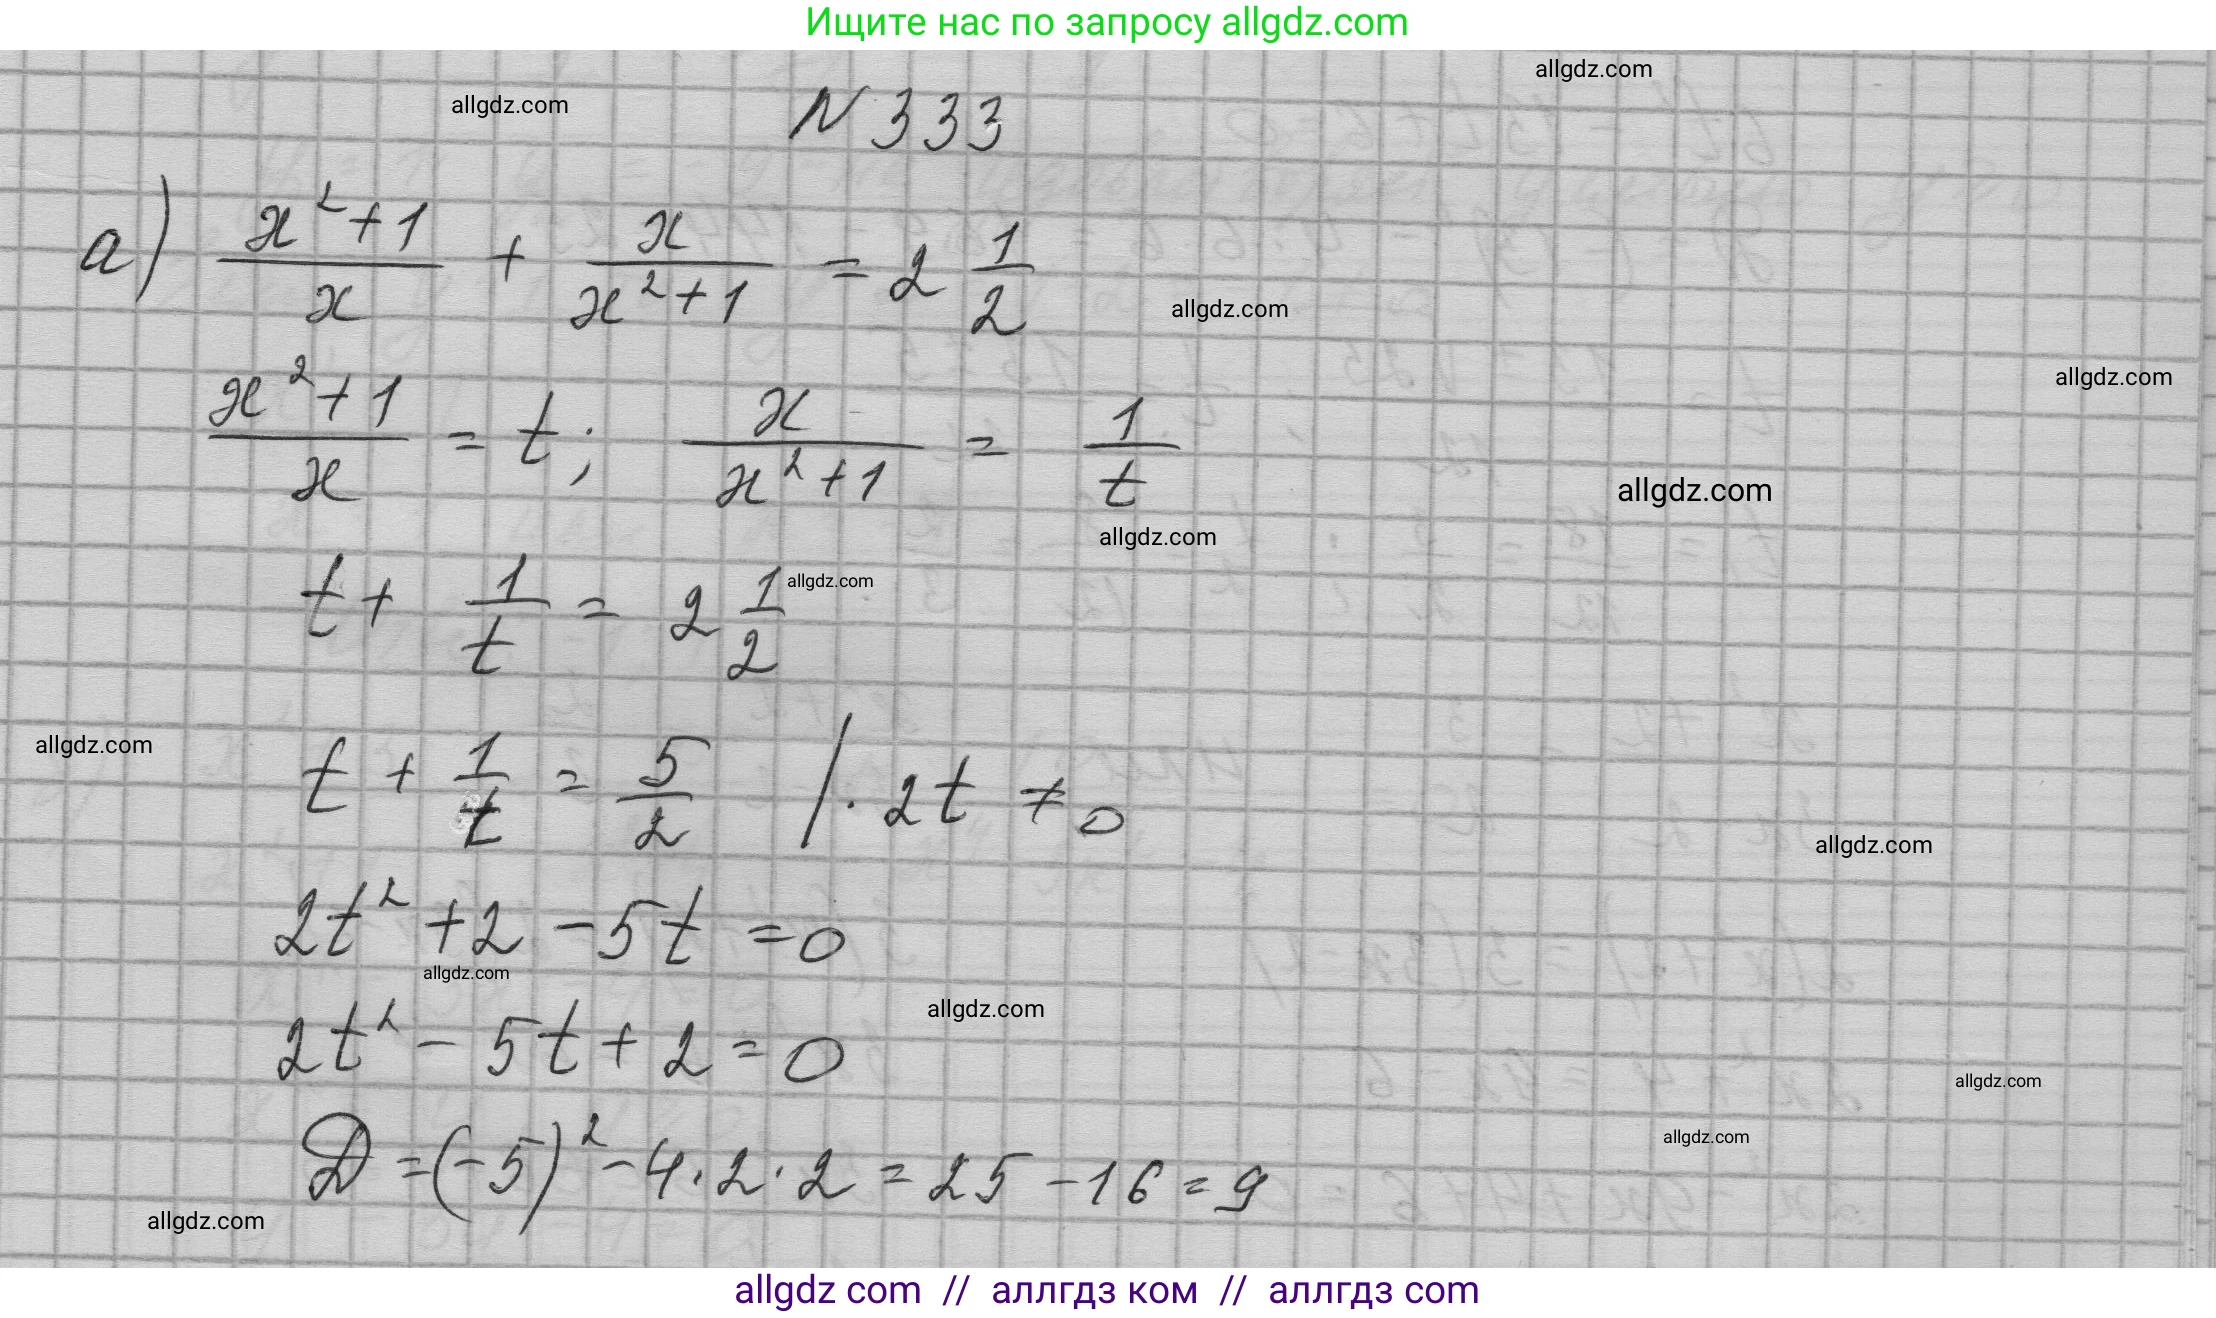 Ищите нас по запросу allgdz.com
allgdz.com
allgdz.com
N 333
а) (x²+1)/x + x/(x²+1) = 2 1/2
allgdz.com
allgdz.com
(x²+1)/x = t; x/(x²+1) = 1/t
allgdz.com
allgdz.com
t + 1/t = 2 1/2
allgdz.com
allgdz.com
t + 1/t = 5/2 / · 2t ≠ 0
allgdz.com
2t² + 2 - 5t = 0
allgdz.com
allgdz.com
2t² - 5t + 2 = 0
allgdz.com
allgdz.com
D = (-5)² - 4 · 2 · 2 = 25 - 16 = 9
allgdz.com
allgdz com // аллгдз ком // аллгдз com